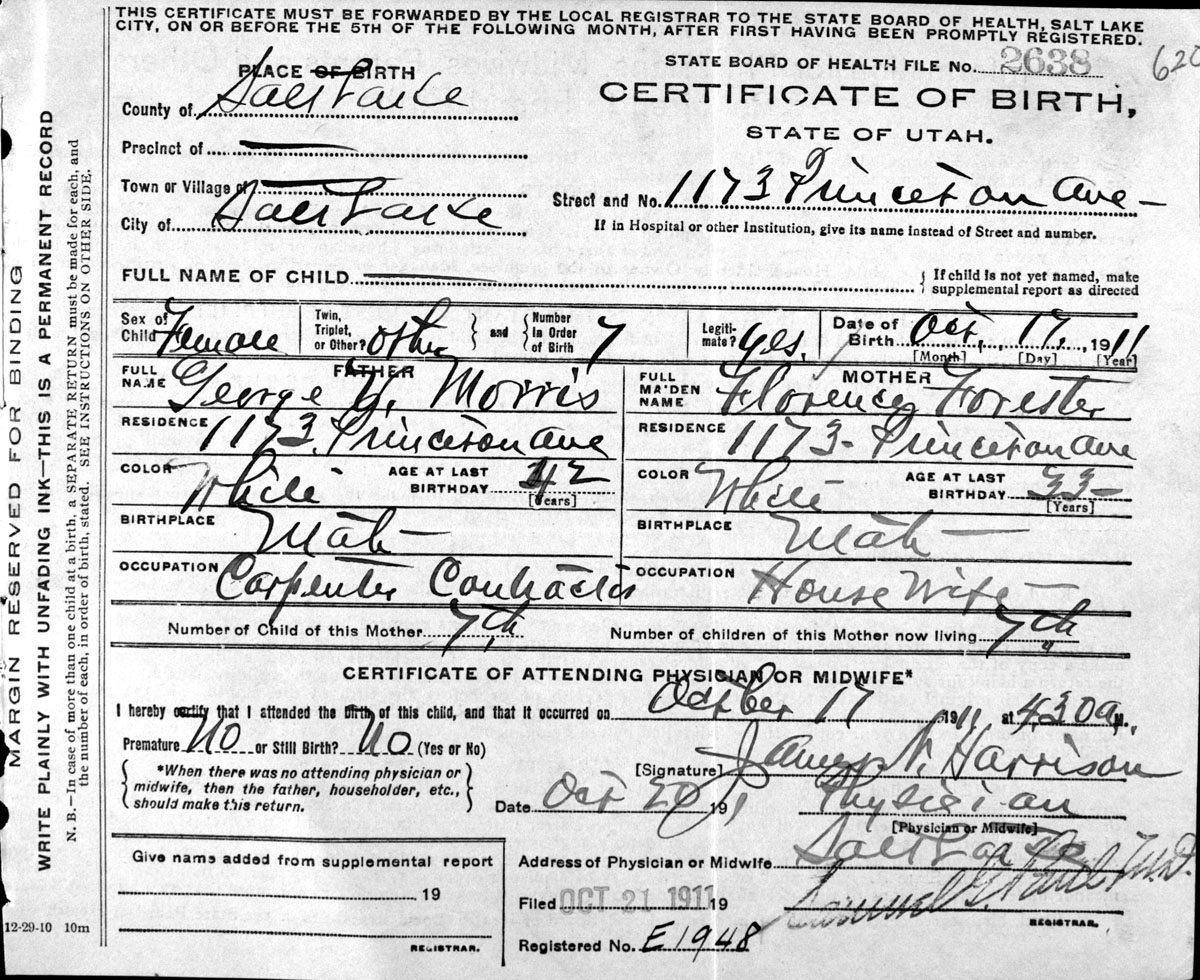 THIS CERTIFICATE MUST BE FORWARDED BY THE LOCAL REGISTRAR TO THE STATE BOARD OF HEALTH, SALT LAKE
CITY, ON OR BEFORE THE 5TH OF THE FOLLOWING MONTH, AFTER FIRST HAVING BEEN PROMPTLY REGISTERED.
STATE BOARD OF HEALTH FILE No. 2638
620
CERTIFICATE OF BIRTH,
STATE OF UTAH.
PLACE OF BIRTH
County of Salt Lake
Precinct of
Town or Village of
City of Salt Lake
Street and No. 1173 Princeton Ave
If in Hospital or other Institution, give its name instead of Street and number.
FULL NAME OF CHILD
If child is not yet named, make
supplemental report as directed
Sex of Child Female
Twin, Triplet, or Other? other
and
Number in Order of Birth 7
Legiti-mate? yes.
Date of Birth Oct. 17, 1911
[Month] [Day] [Year]
FATHER
FULL NAME George Morris
RESIDENCE 1173 Princeton Ave
COLOR White
AGE AT LAST BIRTHDAY 42
[Years]
BIRTHPLACE Utah
OCCUPATION Carpenter Contractor
MOTHER
FULL MAIDEN NAME Florence Forester
RESIDENCE 1173 - Princeton Ave
COLOR White
AGE AT LAST BIRTHDAY 33
[Years]
BIRTHPLACE Utah
OCCUPATION House Wife
Number of Child of this Mother 7th
Number of children of this Mother now living 7th
CERTIFICATE OF ATTENDING PHYSICIAN OR MIDWIFE*
I hereby certify that I attended the birth of this child, and that it occurred on October 17 1911, at 430 a M.
Premature No or Still Birth? No (Yes or No)
*When there was no attending physician or
midwife, then the father, householder, etc.,
should make this return.
[Signature] James N. Harrison
Date Oct 20 191
Physician
[Physician or Midwife]
Give name added from supplemental report
19
REGISTRAR.
Address of Physician or Midwife Salt Lake
Filed OCT 21 1911 19
Samuel G. Paul M.D.
REGISTRAR.
Registered No. E1948
12-29-10 10m
MARGIN RESERVED FOR BINDING
WRITE PLAINLY WITH UNFADING INK—THIS IS A PERMANENT RECORD
N. B.—In case of more than one child at a birth, a SEPARATE RETURN must be made for each, and
the number of each, in order of birth, stated. SEE INSTRUCTIONS ON OTHER SIDE.